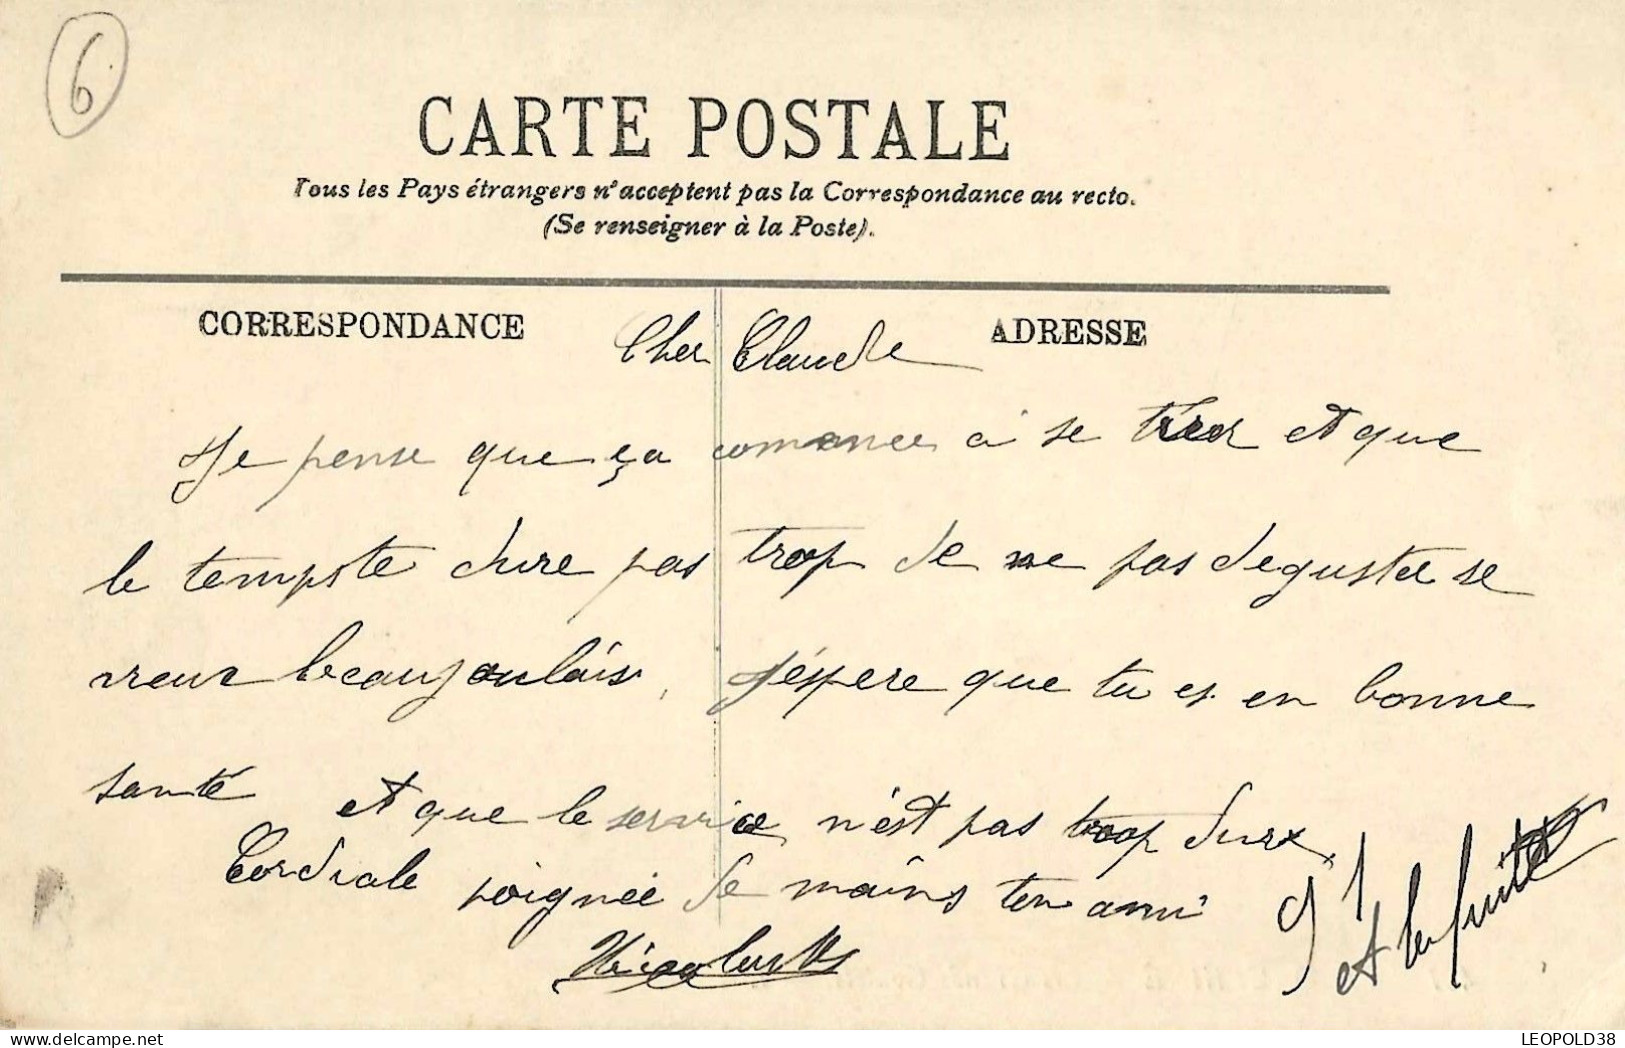 6
CARTE POSTALE
Tous les Pays étrangers n'acceptent pas la Correspondance au recto.
(Se renseigner à la Poste).
CORRESPONDANCE
ADRESSE
Cher Claude
Je pense que ça comance à se tirer et que
le temps te dure pas trop de ne pas deguster se
vieux beaujoulais, J'éspere que tu es en bonne
santé et que le service n'est pas trop dure,
Cordiale poignée de mains ton ami
91
et la fuite
LEOPOLD38